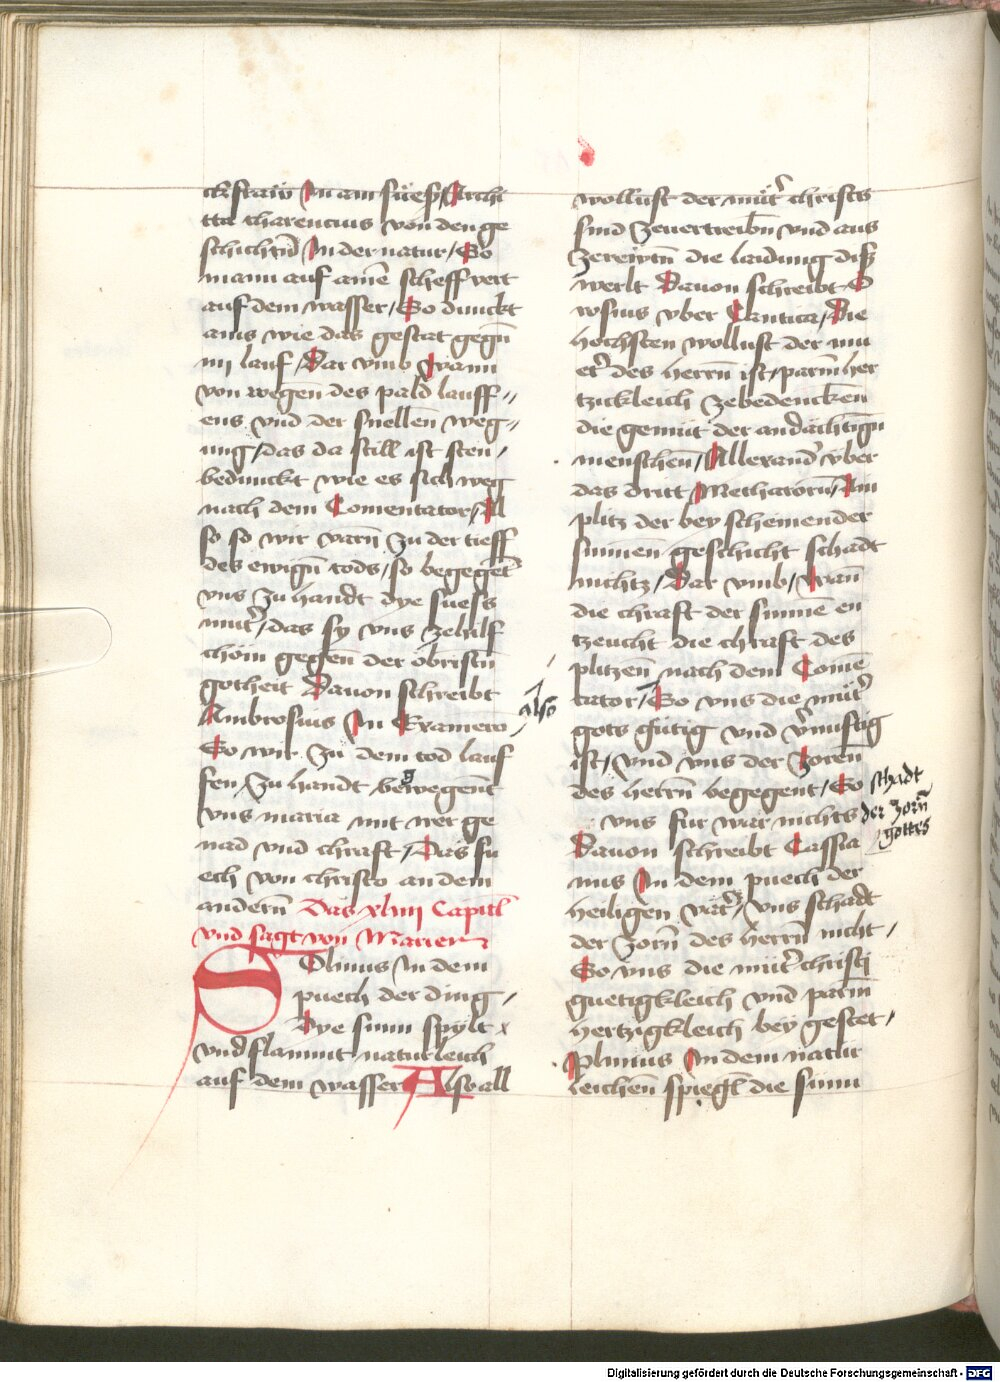 ckhstain In am fuess / Archi
tta tharencius von den ge
schichtn̄ In der natur / So
mann auf aine scheff vert
auf dem wasser / So dunckt
ains wie das gestat gegn̄
im lauf / Dar vmb wann
von wegen des pald lauff〃
ens vnd der snellen weg〃
ung / das da still ist sten /
bedunckt wie es sich weg
nach dem Comentator / Al
so so wir varn̄ zu der tieff
des ewign̄ tods / so begegēt
vns zu handt dye suess
mut̄ / das sy vns zehilf
chöm gegen̄ der obristn̄
gotheit Dauon schreibt
Ambrosius In Examero
So wir zu dem tod lauf
fen / zu handt bewegent
vns maria mit irer ge
nad vnd chraft / Das su
ech von christo an dem
andern̄ Das xliiij Capitl̄
vnd sagt von Marien
Solinus In dem
puech der ding /
Dye sunn spylt
vnd flammt naturleich
auf dem wasser Also all
also
wollust der müt̄ christs
sind zeuertreibn̄ vnd aus
zereitn̄ die laidung diss
werlt Dauon schreibt O
rosius vber Cantica / Die
hochsten wollust der mu
et̄ des herrn̄ ist / parm̄her
tzickleich zebedencken
die gemüt der andächtign̄
menschen̄ / Allexand̄ vber
das dritt Methatorn̄ / Ain
plitz der bey scheinender
sunnen geschicht schadt
nichtz / Dar vmb / wan̄
die chraft der sunnē en
tzeucht die chraft des
plitzen̄ nach dem Comē
tator / So vns die müt̄
gots gütig vnd v̄nuftig
ist / vnd vns der zoren̄
des herrn̄ begegent / So
vns fur war nichts
schadt
der zorn̄
gottes
Dauon schreibt Cassia
nus In dem puech der
heiligen vät̄ / vns schadt
der zorn̄ des herrn̄ nicht /
So vns die müt̄ christj
guetigkleich vnd parm̄
hertzigkleich bey gestet /
Plinius In dem natur
leichen̄ spiegl̄ die sunn
Digitalisierung gefördert durch die Deutsche Forschungsgemeinschaft - DFG